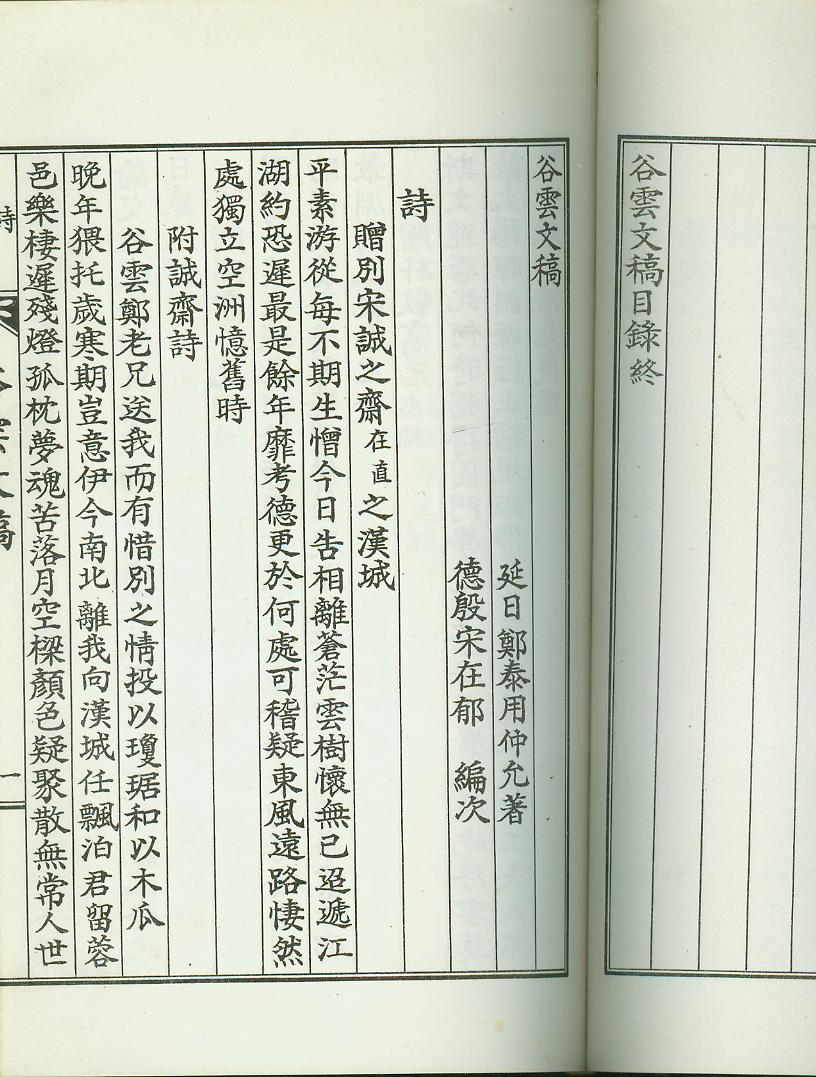 谷雲文稿目錄終
谷雲文稿
延日鄭泰用仲允著
德殷宋在郁 編次
詩
贈別宋誠之齋在直之漢城
平素游從每不期生憎今日告相離蒼茫雲樹懷無已迢遞江
湖約恐遲最是餘年靡考德更於何處可稽疑東風遠路悽然
處獨立空洲憶舊時
附誠齋詩
谷雲鄭老兄送我而有惜別之情投以瓊琚和以木瓜
晚年猥托歲寒期豈意伊今南北離我向漢城任飄泊君留蓉
邑樂棲遲殘燈孤枕夢魂苦落月空樑顏色疑聚散無常人世
詩 谷雲文稿 一